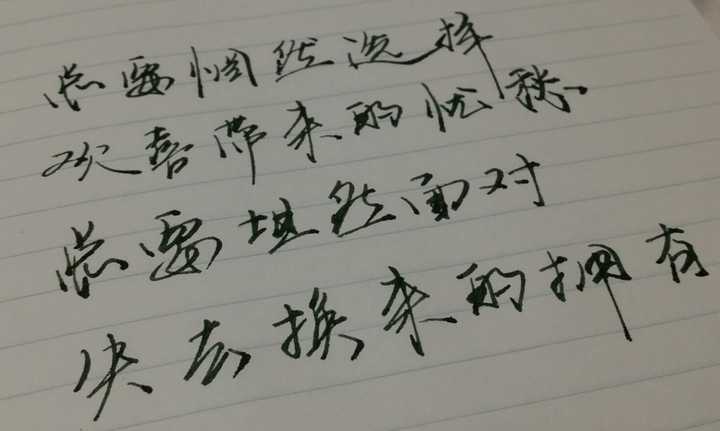 总要惘然选择
欢喜带来的忧愁
总要坦然面对
失去换来的拥有